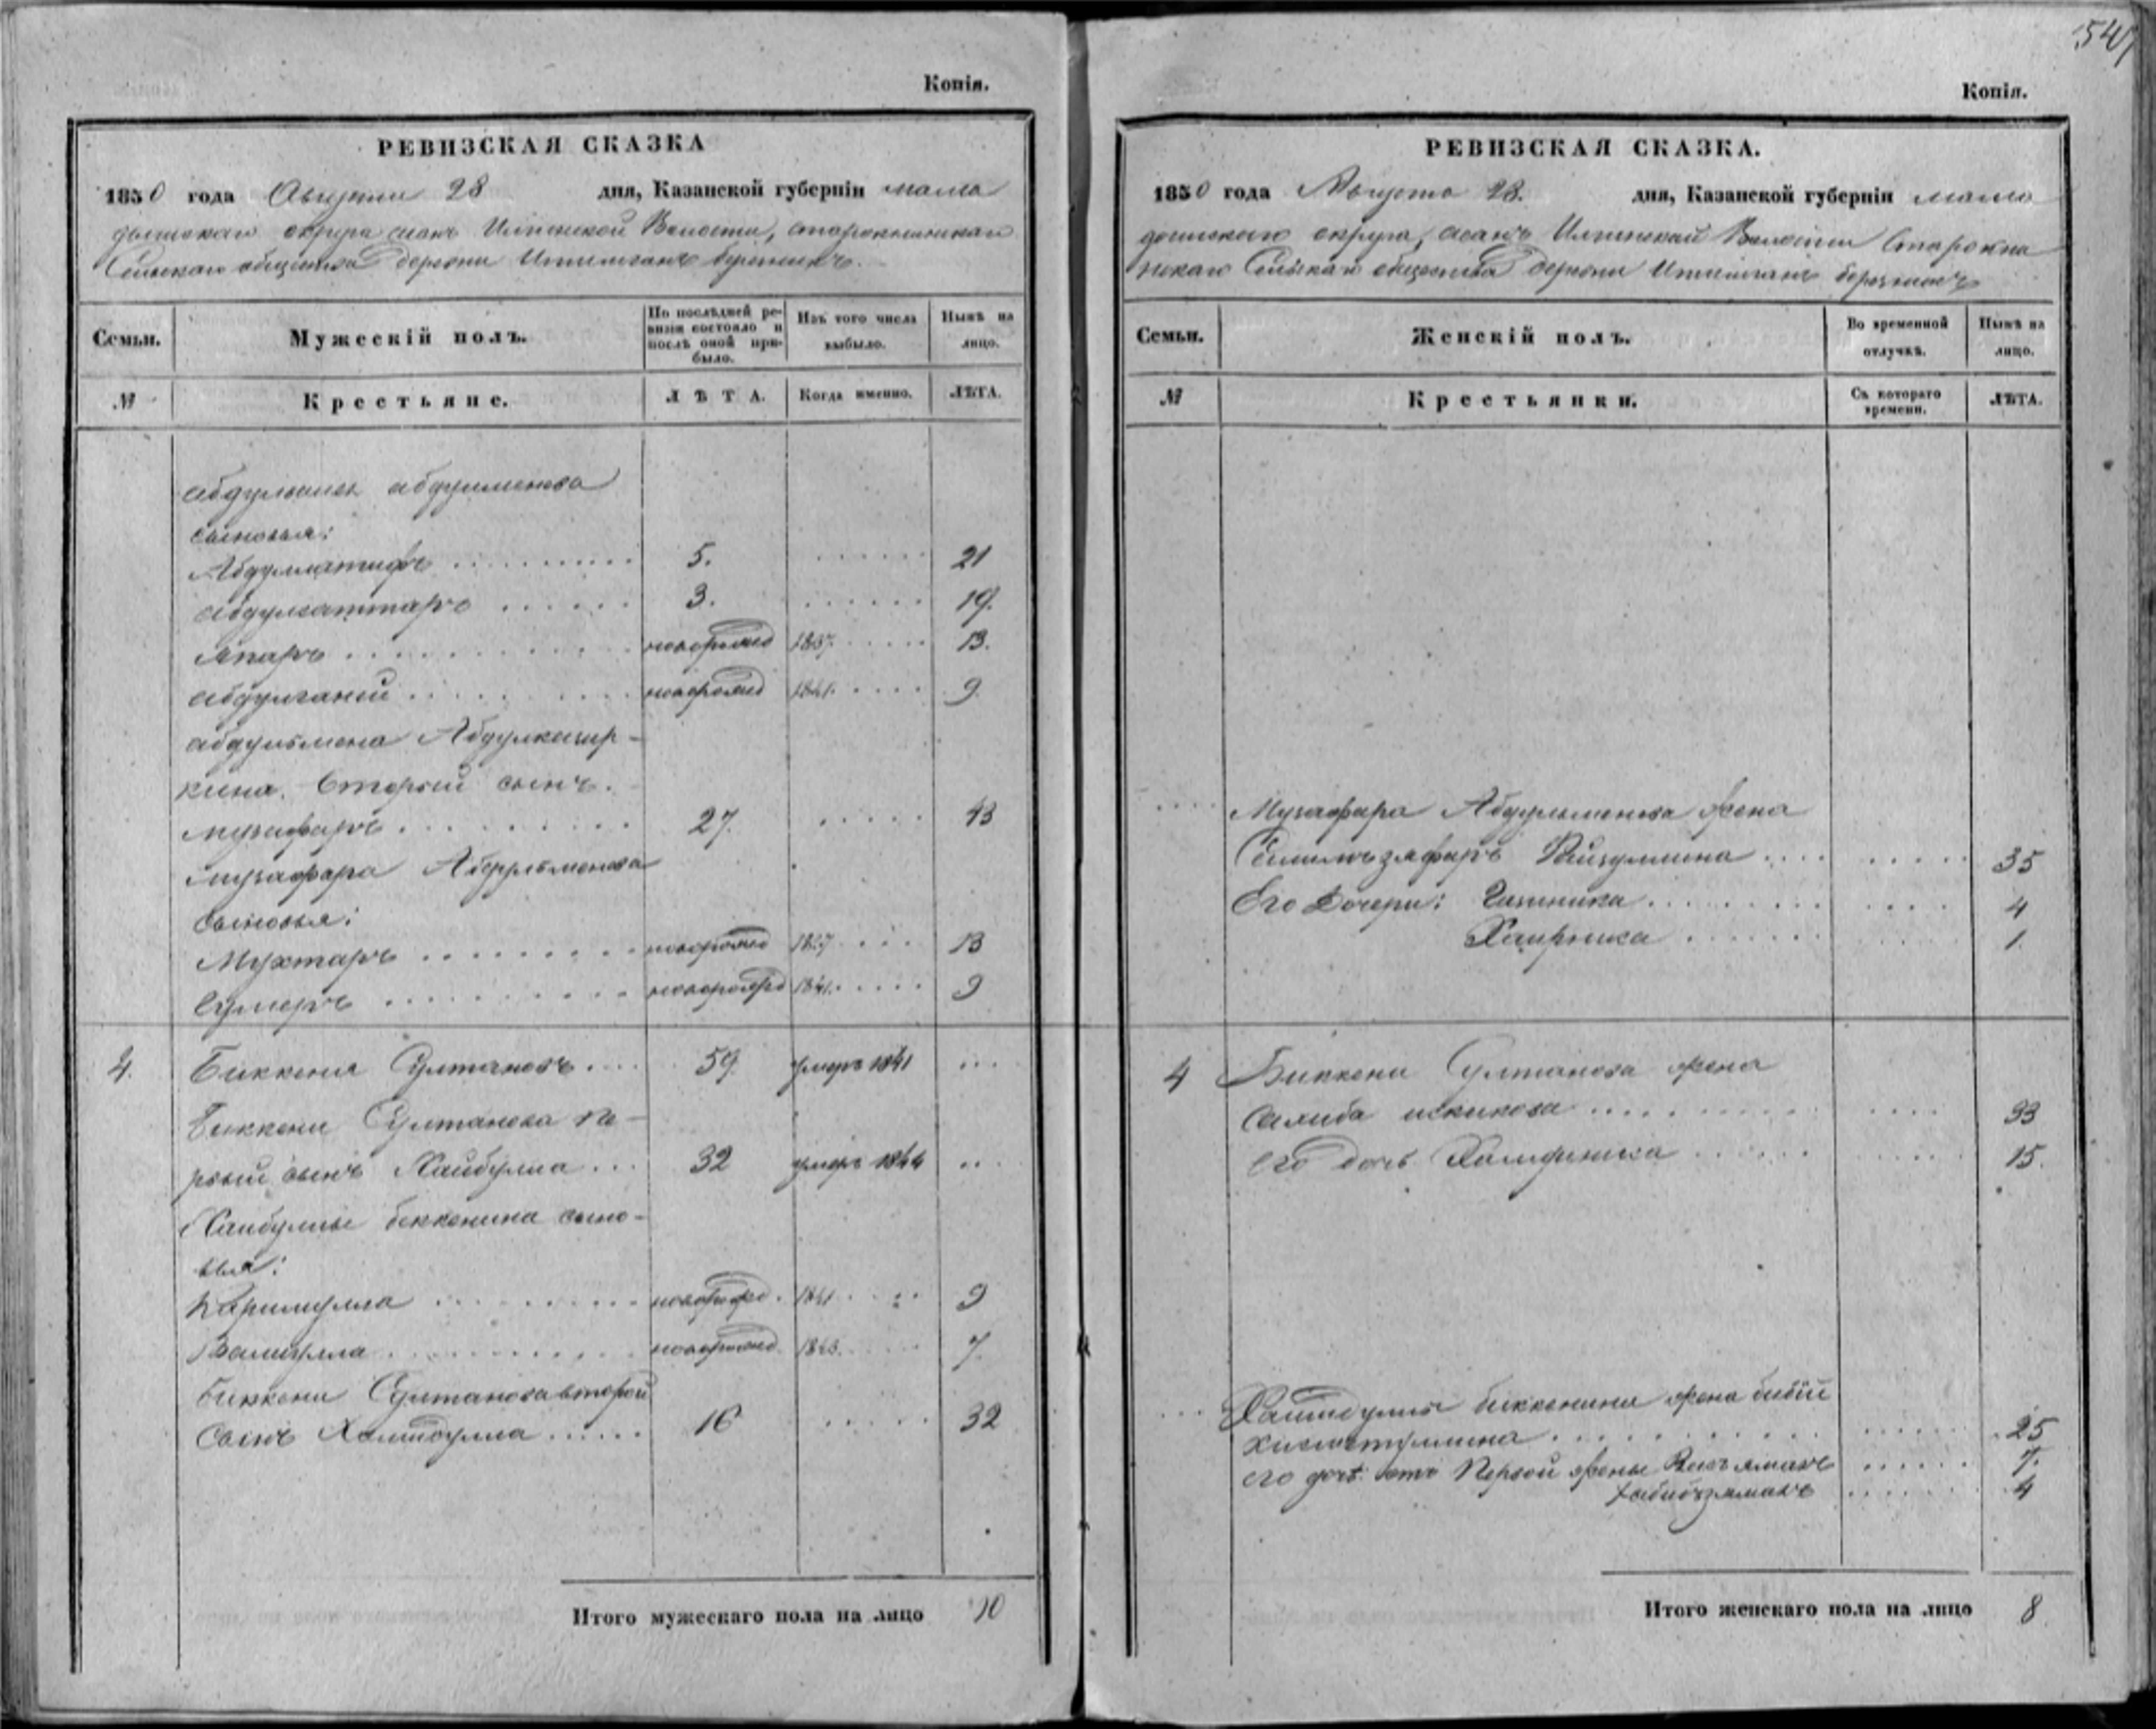 Копія.
РЕВИЗСКАЯ СКАЗКА
1850 года Августа 28 дня, Казанской губерніи мама
дышскаго округа асанъ Илгинской Волости,
Сельскаго общества деревни
Семьи.
Мужескій полъ.
По послѣдней ре-
визіи состояло и
послѣ оной при-
было.
Изъ того числа
выбыло.
Нынѣ на
лицо.
№
Крестьяне.
ЛѢТА.
Когда именно.
ЛѢТА.
абдулменева
сыновья:
Абдуллатифъ . . . 5. . . . 21
абдулгаттаръ . . . 3. . . . 19.
Апаръ . . . новорожд 1837. . . . 13.
абдулганей . . . новорожд 1841. . . . 9.
абдульмена
кина. второй сынъ.
музафаръ . . . 27. . . . 43
музафара Абдульменева
сыновья:
Мухтаръ . . . новорожд 1837 . . . 13
Гумеръ . . . новорожд 1841. . . . 9
4. Биккеня Султановъ . . . 59. умеръ 1841 . . .
Биккени Султанова пе-
рвый сынъ Хайбулла . . . 32 умеръ 1844 . . .
Хайбуллы беккенина сыно-
вья:
Каримулла . . . новорожд. 1841 . . . 9
Валиулла . . . новорожд. 1843. . . . 7.
Биккени Султанова второй
сынъ Хамидулла . . . 16 . . . 32
Итого мужескаго пола на лицо 10
547
Копія.
РЕВИЗСКАЯ СКАЗКА.
1850 года Августа 28. дня, Казанской губерніи мама
дышскаго округа, асанъ Илгинской Волости
Сельскаго общества деревни
Семьи.
Женскій полъ.
Во временной
отлучкѣ.
Нынѣ на
лицо.
№
Крестьянки.
Съ котораго
времени.
ЛѢТА.
Музафара Абдульменева жена
Файзуллина . . . 35
Его дочери: . . . 4
. . . 1.
4 Биккени Султанова жена
Салиба . . . 33
его дочь . . . 15.
биккенина жена бибїи
хисматуллина . . . 25
его дочь отъ первой жены . . . 7.
Хабибзяманъ . . . 4
Итого женскаго пола на лицо 8.